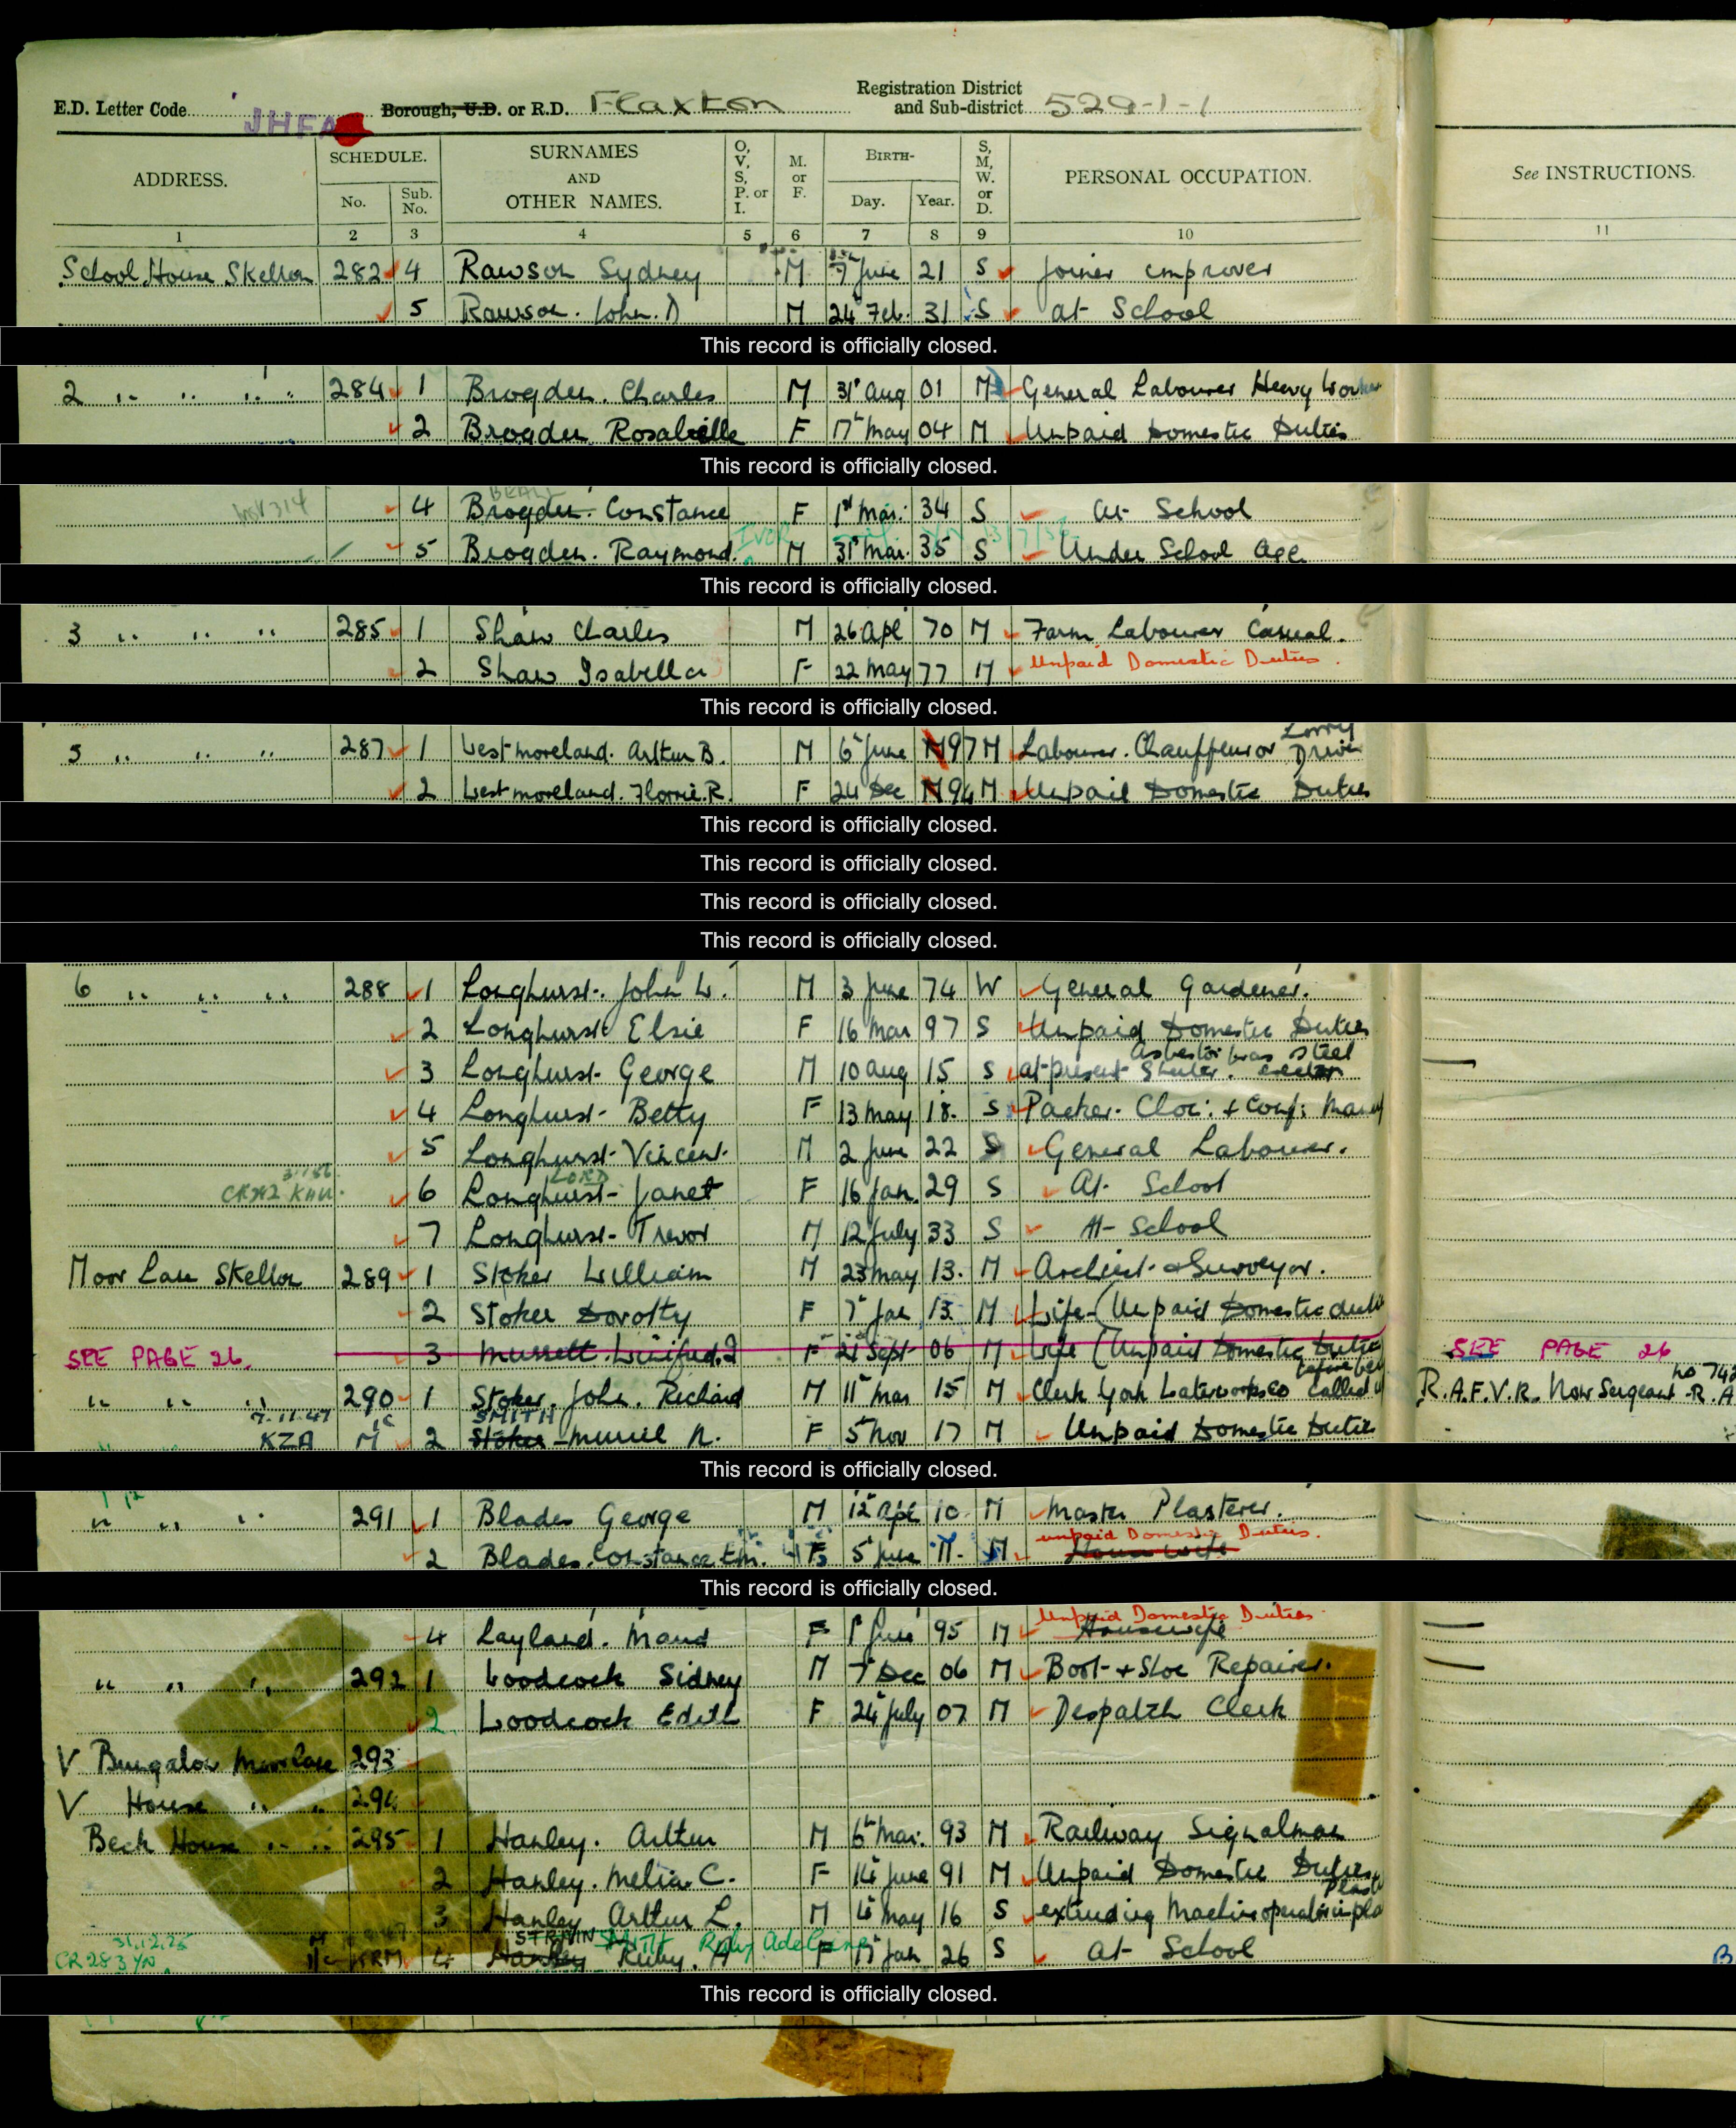 E.D. Letter Code JHFA Borough, U.D. or R.D. Flaxton Registration District and Sub-district 529-1-1
ADDRESS. SCHEDULE. No. Sub. No. SURNAMES AND OTHER NAMES. O, V, S, P. or I. M. or F. BIRTH- Day. Year. S, M, W. or D. PERSONAL OCCUPATION. See INSTRUCTIONS.
1 2 3 4 5 6 7 8 9 10 11
School House Skelton 282 4 Rawson Sydney M 7 June 21 S Joiner improver
5 Rawson. John. D M 24 Feb. 31 S at School
This record is officially closed.
2 " " " 284 1 Brogden. Charles M 31 Aug 01 M General Labourer Heavy Worker
2 Brogden Rosabelle F 17 May 04 M Unpaid Domestic Duties
This record is officially closed.
4 Brogden. Constance F 1st Mar. 34 S At School
5 Brogden. Raymond. IVOR M 31st Mar. 35 S Under School Age
This record is officially closed.
3 " " " 285 1 Shaw Charles M 26 Apl 70 M Farm Labourer Casual.
2 Shaw Isabella F 22 May 77 M Unpaid Domestic Duties.
This record is officially closed.
5 " " " 287 1 Westmoreland. Arthur B. M 6 June 97 M Labourer. Chauffeur or Lorry Driver
2 Westmoreland. Florrie. R. F 24 Dec 94 M Unpaid Domestic Duties
This record is officially closed.
This record is officially closed.
This record is officially closed.
This record is officially closed.
6 " " " 288 1 Longhurst. John W. M 3 June 74 W General Gardener.
2 Longhurst Elsie F 16 Mar 97 S Unpaid Domestic Duties
3 Longhurst George M 10 Aug 15 S at present steel erector
4 Longhurst Betty F 13 May 18. S Packer. Choc: + Conf: Manuf
5 Longhurst Vincent. M 2 June 22 S General Labourer.
6 Longhurst LORD Janet F 16 Jan. 29 S At School
7 Longhurst Trevor M 12 July 33 S At School
Moor Lane Skelton 289 1 Stoker William M 23 May 13. M Architect & Surveyor.
2 Stoker Dorothy F 7 Jan 13. M Wife (Unpaid Domestic duties
SEE PAGE 26. 3 Mussett. Winifred. I F 21 Sept 06 M Wife (Unpaid Domestic Duties SEE PAGE 26
" " " 290 1 Stoker. John. Richard M 11 Mar 15 M Clerk York Waterworks Co before being called R.A.F.V.R. Now Sergeant R.A
7.11.47 KZA M 2 Stoker SMITH Muriel N. F 5 Nov 17 M Unpaid Domestic Duties
This record is officially closed.
" " " 291 1 Blades George M 12 Apl 10 M Master Plasterer.
2 Blades. Constance Em. F 5 June 11. M Housewife unpaid Domestic Duties.
This record is officially closed.
4 Layland. Maud F 1 June 95 M Housewife Unpaid Domestic Duties
" " " 292 1 Woodcock Sidney M 7 Dec 06 M Boot & Shoe Repairer.
2 Woodcock Edith F 24 July 07 M Despatch Clerk
V Bungalow Moor Lane 293
V House " " 294
Beck House " " 295 1 Hanley. Arthur M 6 Mar. 93 M Railway Signalman
2 Hanley. Melia. C. F 14 June 91 M Unpaid Domestic Duties
3 Hanley Arthur L. M 4 May 16 S extruding Machine operator in pla
CR 283 YN 31.12.75 KRM 4 Hanley SMITH Ruby. A Ruby Adelaine F 17 Jan 26 S at School
This record is officially closed.